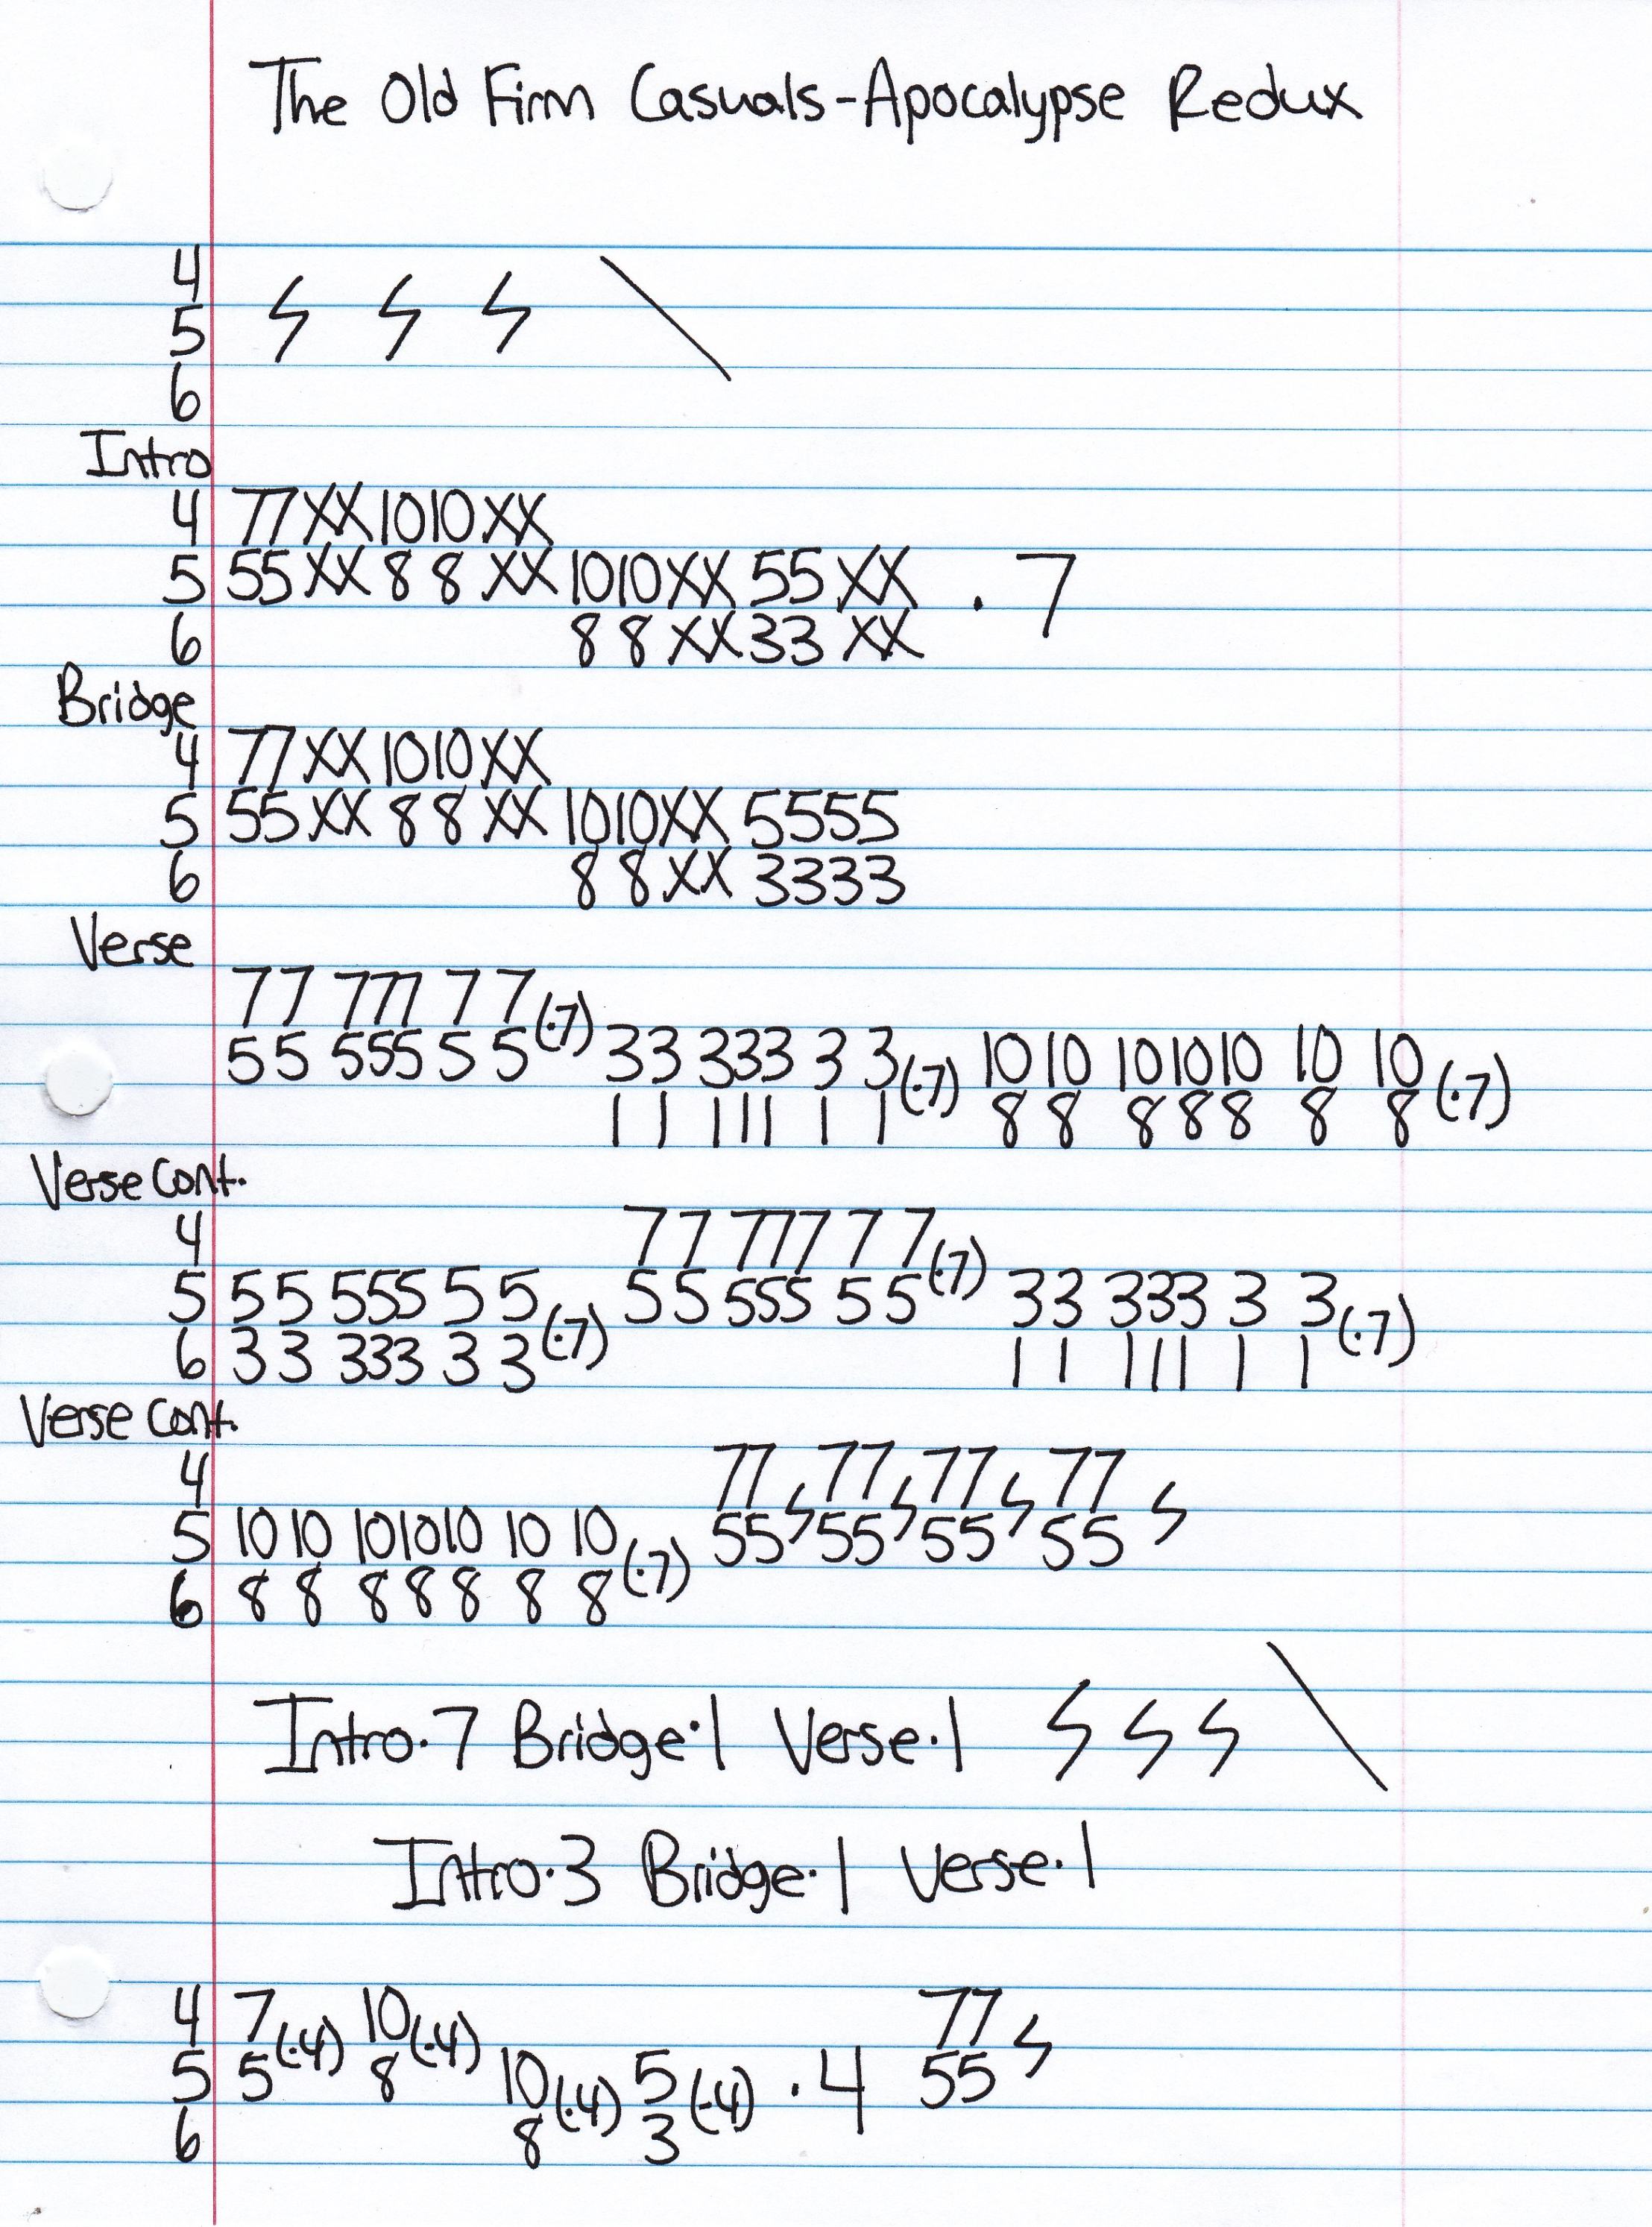 The Old Firm Casuals-Apocalypse Redux
4
5
6
Intro
4 77XX1010XX
5 55XX88XX1010XX55XX ·7
6 88XX33XX
Bridge
4 77XX1010XX
5 55XX88XX1010XX5555
6 88XX3333
Verse
77 777 7 7(·7)
55 555 5 5 33 333 3 3(·7) 10 10 101010 10 10(·7)
11 111 1 1 8 8 888 8 8
Verse Cont.
4 77 777 7 7(·7)
5 55 555 5 5(·7) 55 555 5 5 33 333 3 3(·7)
6 33 333 3 3 11 111 1 1
Verse Cont.
4 77 77 77 77
5 10 10 101010 10 10(·7) 55 55 55 55
6 8 8 888 8 8
Intro·7 Bridge·1 Verse·1
Intro·3 Bridge·1 Verse·1
4 7(·4) 10(·4) 77
5 5 8 10(·4) 5(·4) ·4 55
6 8 3